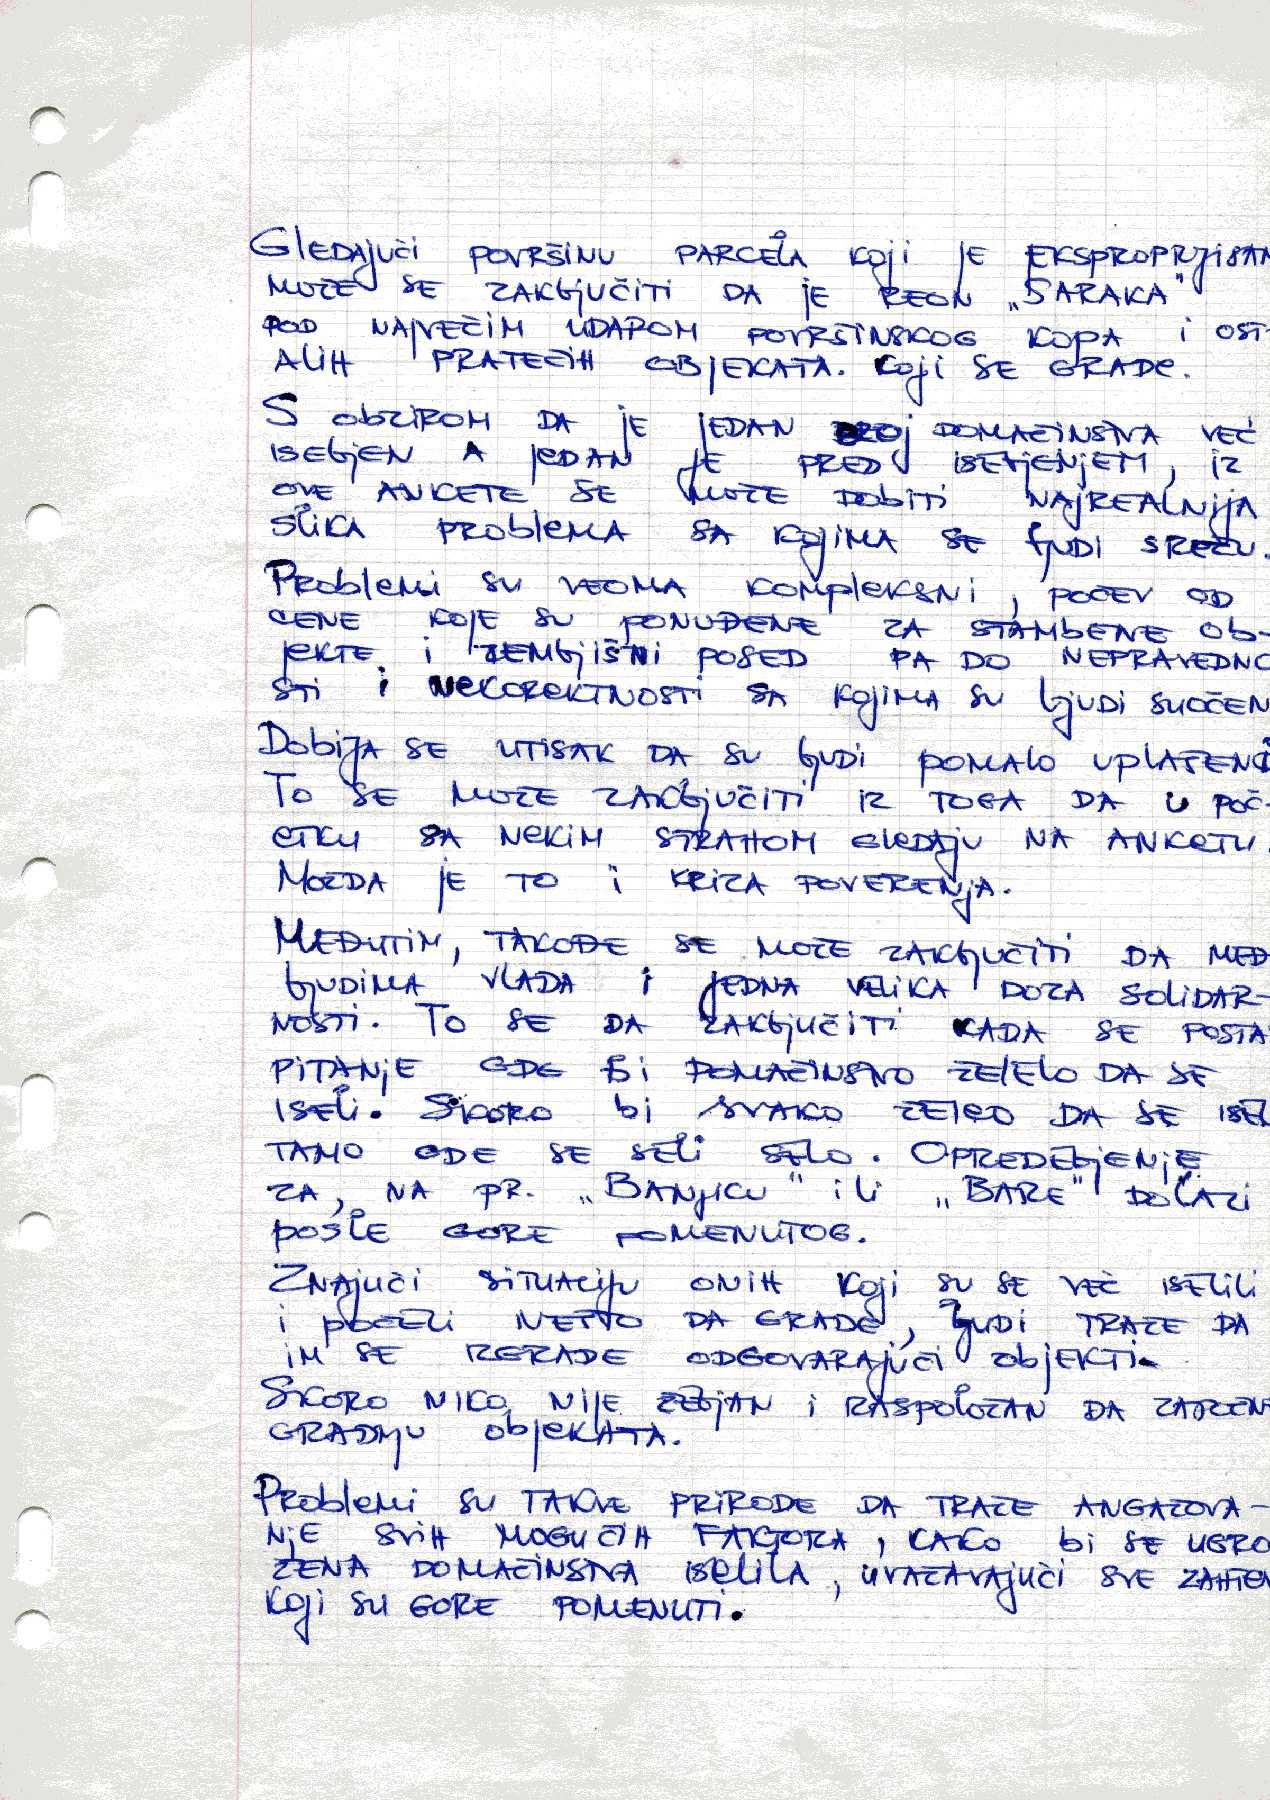 Gledajući površinu parcela koji je eksproprijisan
može se zaključiti da je reon „Šaraka"
pod najvećim udarom površinskog kopa i ost-
alih pratećih objekata. Koji se grade.
S obzirom da je jedan broj domaćinstva već
iseljen a jedan je pred iseljenjem, iz
ove ankete se može dobiti najrealnija
slika problema sa kojima se ljudi sreću.
Problemi su veoma kompleksni, počev od
cene koje su ponuđene za stambene ob-
jekte i zemljišni posed pa do nepravedno
sti i nekorektnosti sa kojima su ljudi suočen
Dobija se utisak da su ljudi pomalo uplašeni
To se može zaključiti iz toga da u poč-
etku sa nekim strahom gledaju na anketu.
Možda je to i kriza poverenja.
Međutim, takođe se može zaključiti da međ
ljudima vlada i jedna velika doza solidar-
nosti. To se da zaključiti kada se posta
pitanje gde bi domaćinstvo želelo da se
iseli. Skoro bi svako želeo da se isel
tamo gde se seli selo. Opredeljenje
za, na pr. „Banjicu" ili „Bare" dolazi
posle gore pomenutog.
Znajući situaciju onih koji su se već iselili
i počeli nešto da grade, ljudi traže da
im se izgrade odgovarajući objekti.
Skoro niko nije željan i raspoložan da započne
gradnju objekata.
Problemi su takve prirode da traže angažova-
nje svih mogućih faktora, kako bi se ugro
žena domaćinstva iselila, uvažavajući sve zahtev
koji su gore pomenuti.